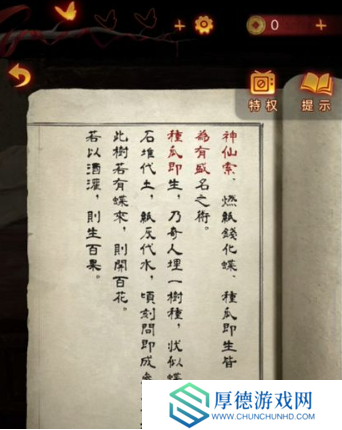 0
特权
提示
神仙索、燃紙錢化蝶、種瓜即生皆
為有盛名之術。
種瓜即生，乃奇人埋一樹種，狀似蝶
石堆代土，紙灰代水，頃刻間即成
此樹若有蝶來，則開百花。
若以酒灌，則生百果。
厚德游戏网
WWW.CHUNCHUNHD.COM